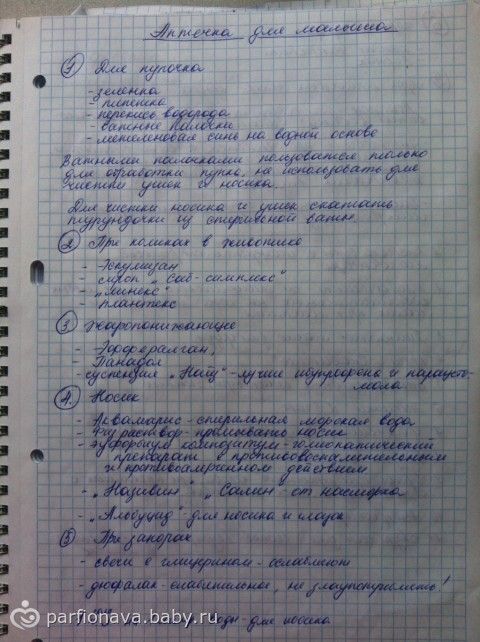 Аптечка для малыша
1 Для пупочка
- зеленка
- пипетка
- перекись водорода
- ватные палочки
- метиленовая синь на водной основе
Ватными палочками пользоваться только
для обработки пупка, не использовать для
чистки ушек и носика.
Для чистки носика и ушек скатать
турундочки из стерильной ваты.
2 При коликах в животике
- Эспумизан
- сироп „Саб-симплекс"
- „Линекс"
- Плантекс
3 Жаропонижающие
- Эффералган,
- Панадол
- суспензия „Найз" - лучше ибупрофена и парацета-
мола
4. Носик
- Аквамарис - стерильная морская вода
- Физраствор - промывать носик
- Эуфорбиум композитум - гомеопатический
препарат с противовоспалительным
и противоаллергенном действием
- „Називин" „Салин" от насморка
- „Альбуцид" - для носика и глазок
5 При запорах
- свечи с глицерином - ослабляют
- дюфалак - слабительное, не злоупотреблять!
воды - для носика
parfionava.baby.ru